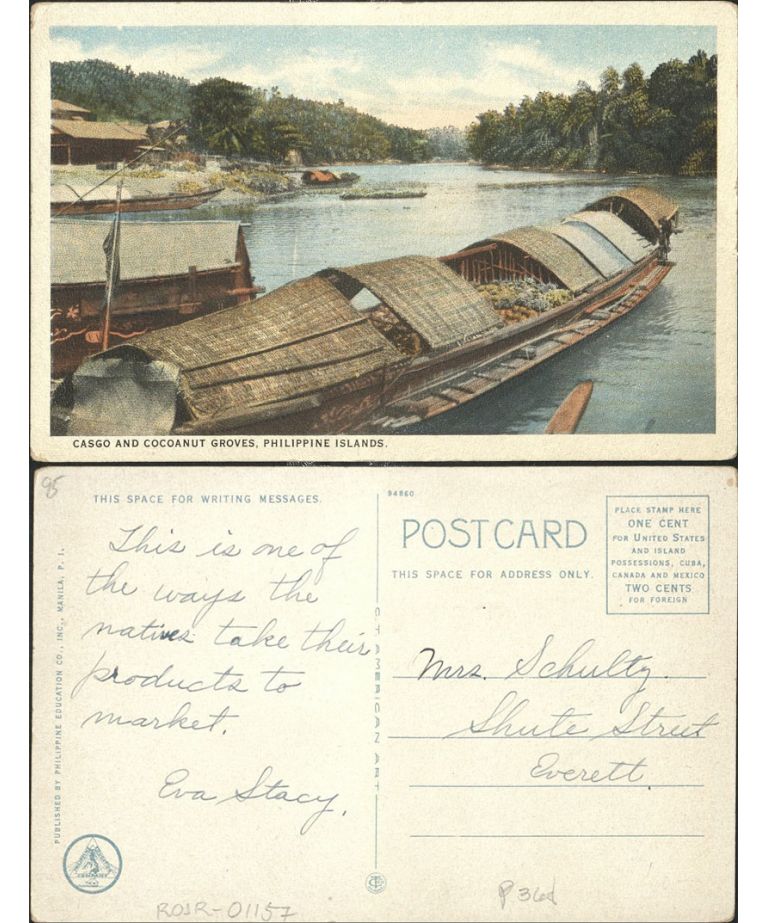 CASGO AND COCOANUT GROVES, PHILIPPINE ISLANDS.
95
THIS SPACE FOR WRITING MESSAGES.
This is one of
the ways the
natives take their
products to
market.
Eva Stacy.
PUBLISHED BY PHILIPPINE EDUCATION CO., INC., MANILA, P. I.
C T AMERICAN ART
94860
POSTCARD
THIS SPACE FOR ADDRESS ONLY.
PLACE STAMP HERE
ONE CENT
FOR UNITED STATES
AND ISLAND
POSSESSIONS, CUBA,
CANADA AND MEXICO
TWO CENTS
FOR FOREIGN
Mrs. Schultz.
Shute Street
Everett.
ROJR-01157
P36d